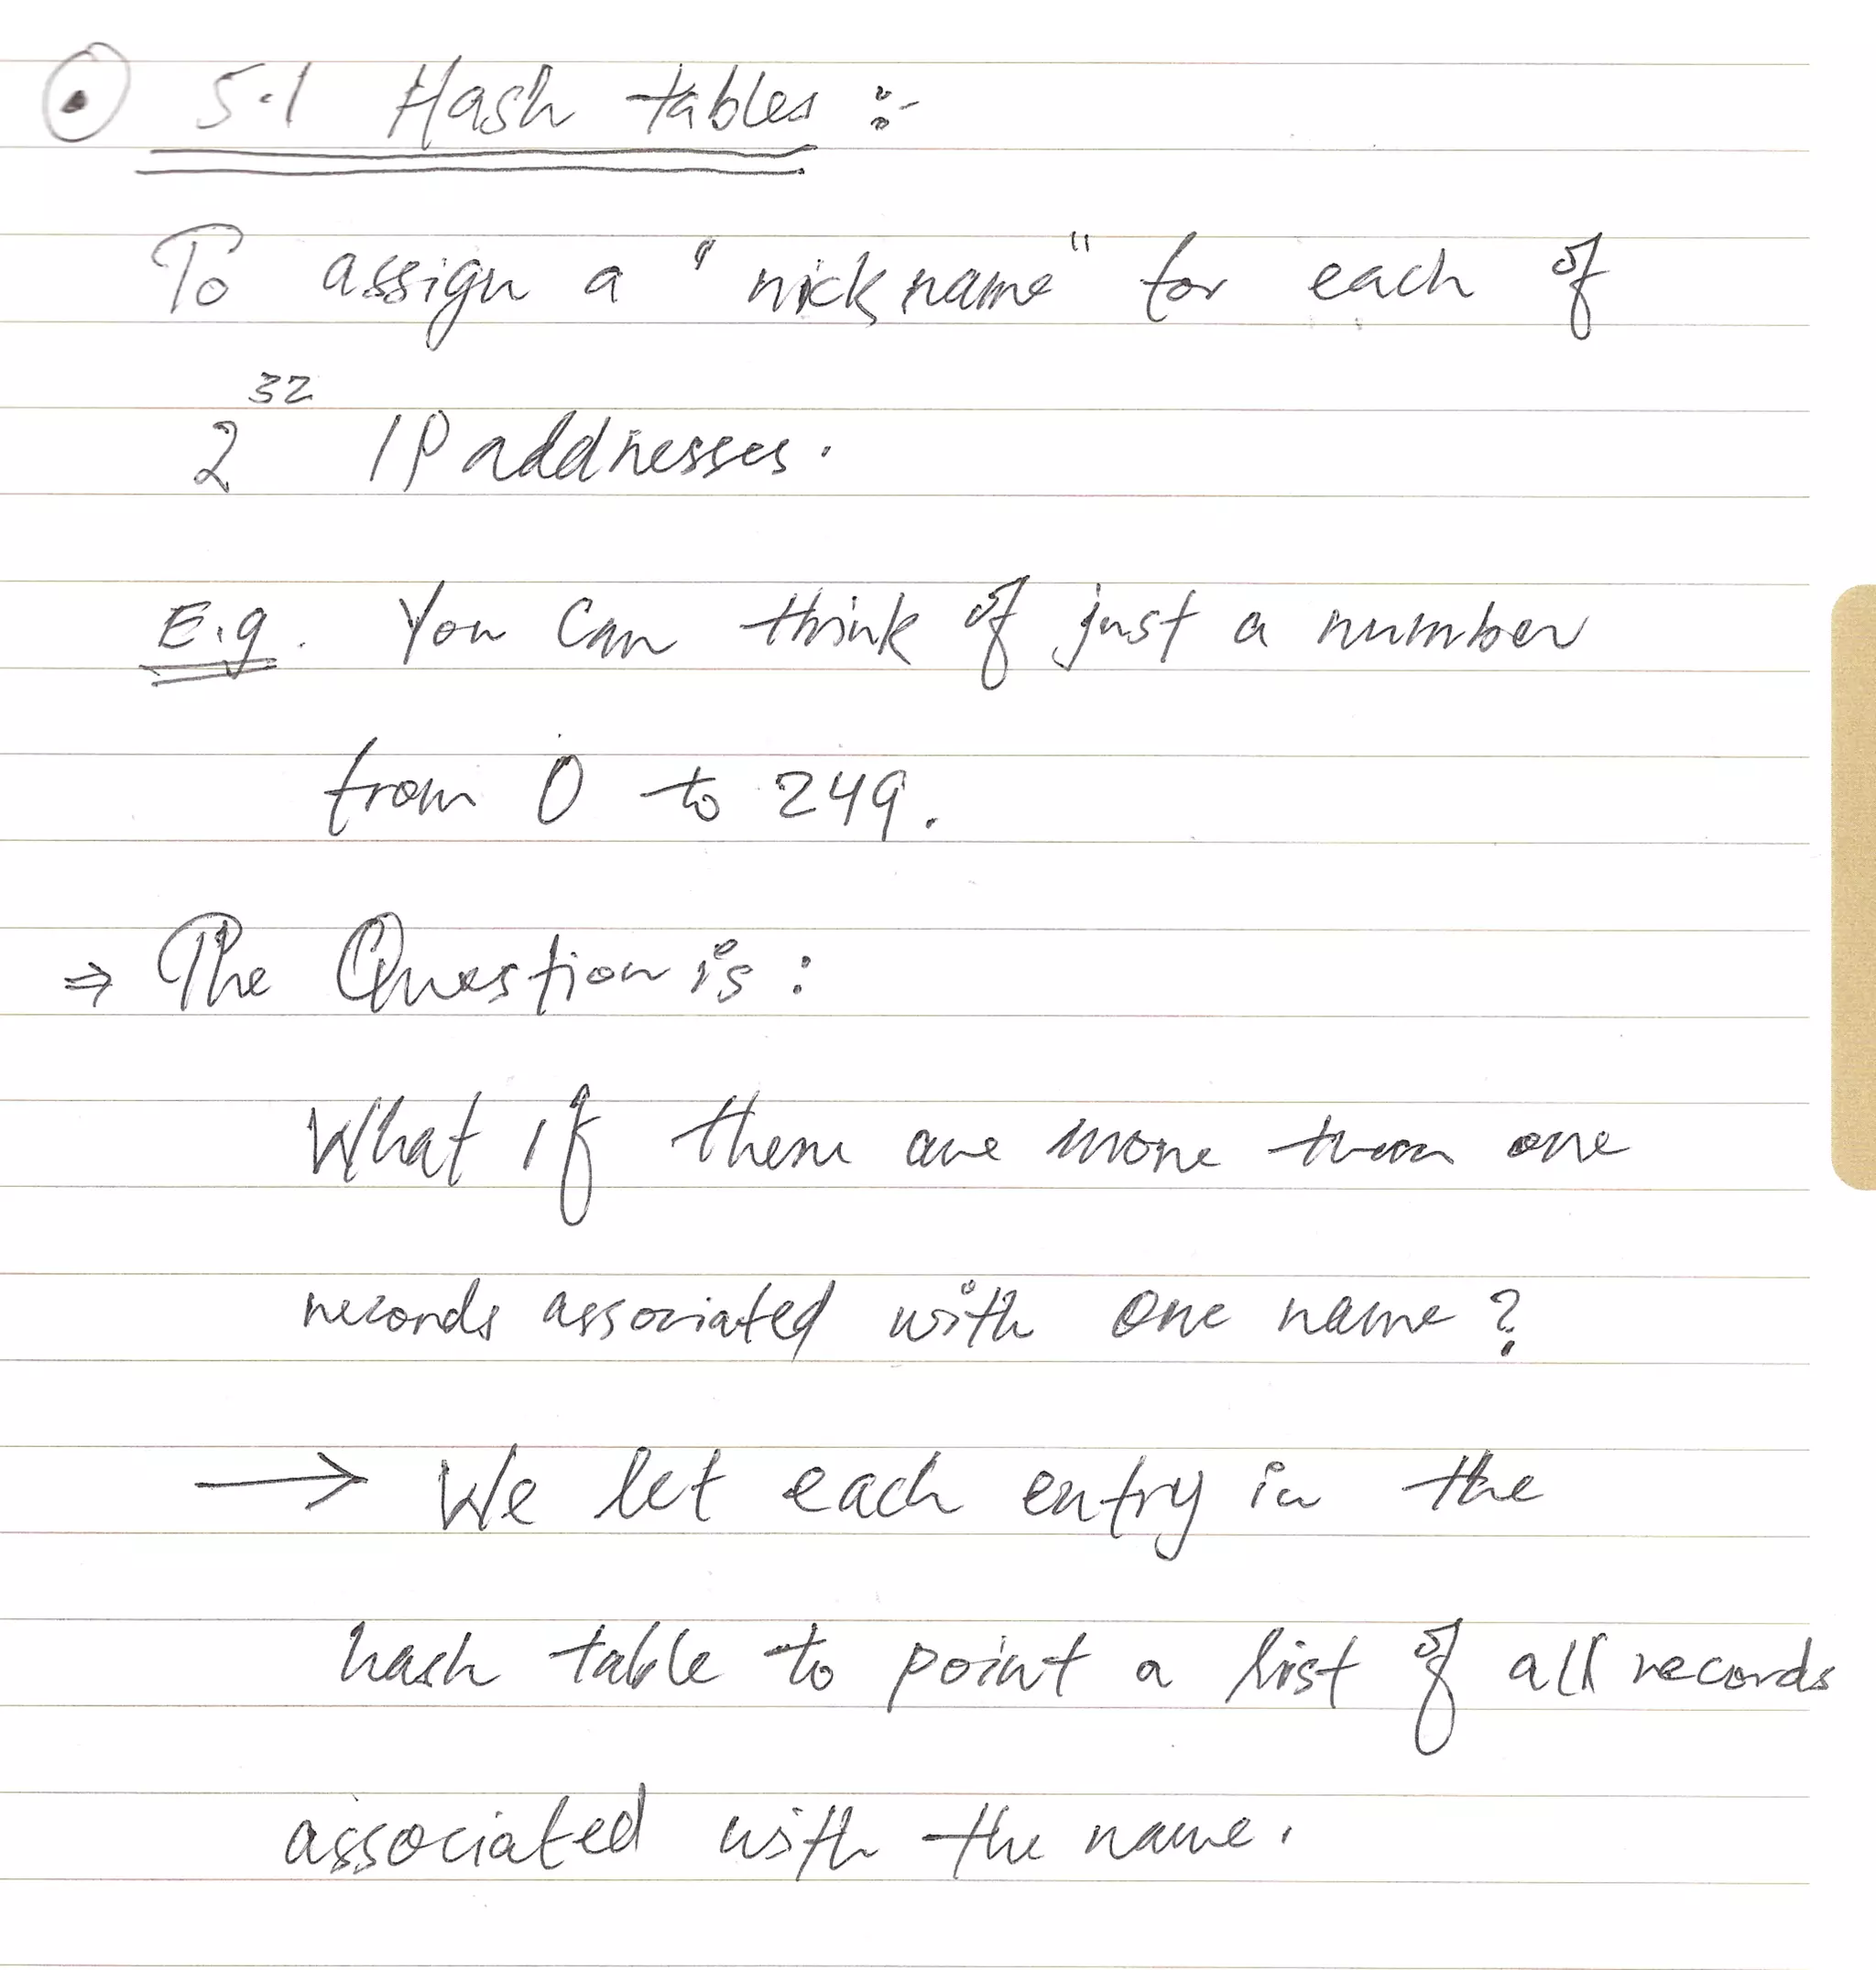 5.1 Hash tables :-
To assign a "nick name" for each of
2^32 IP addresses.
E.g. You can think of just a number
from 0 to 249.
⇒ The Question is:
What if there are more than one
records associated with one name?
→ We let each entry in the
hash table to point a list of all records
associated with the name.